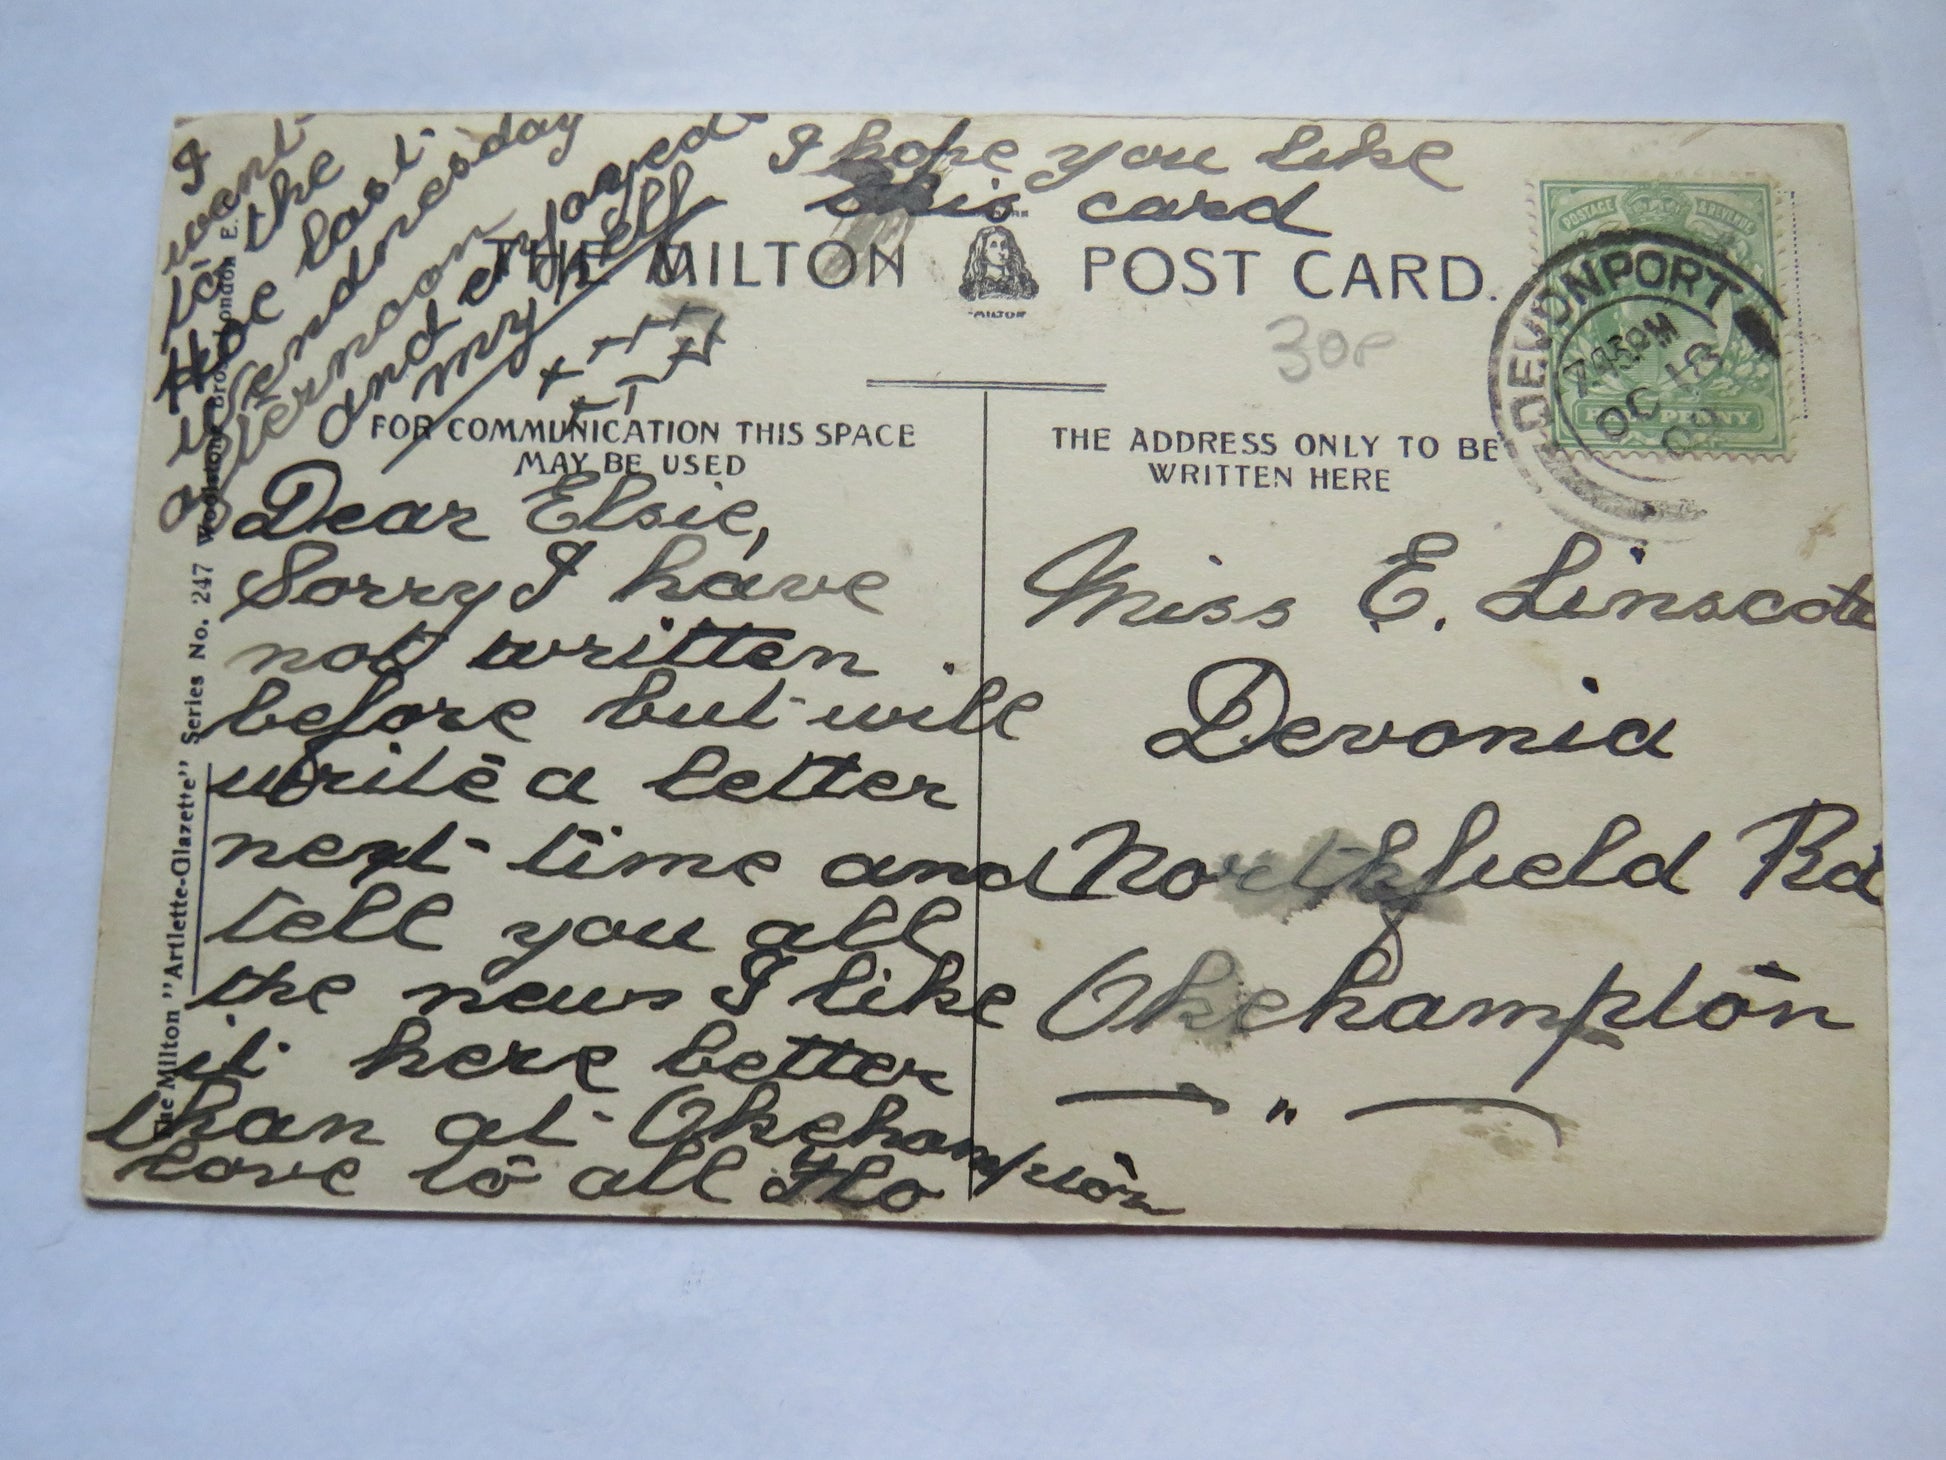 I hope you like
this card
THE MILTON POST CARD.
"MILTON"
30P
POSTAGE & REVENUE
HALFPENNY
DEVONPORT
7 30PM
OC 18
09
FOR COMMUNICATION THIS SPACE
MAY BE USED
THE ADDRESS ONLY TO BE
WRITTEN HERE
Dear Elsie,
Sorry I have
not written
before but will
write a letter
next time and
tell you all
the news I like
it here better
than at Okehampton
love to all Flo
I
went
to the
Hoe last
Wendnesday
afternoon
and enjoyed
my self
Miss E. Linscott
Devonia
Northfield Rd
Okehampton
"
The Milton "Artlette-Glazette" Series No. 247 Woolstone Bros. London E.